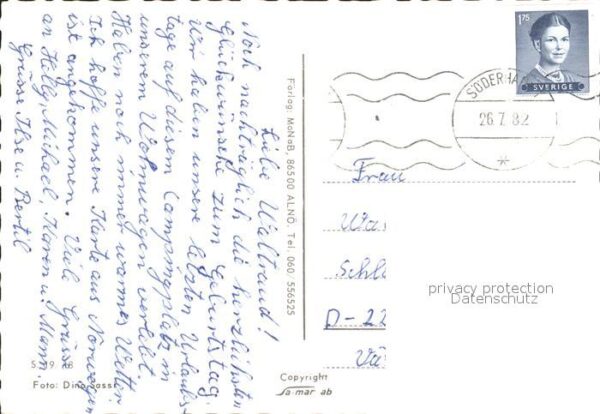 Liebe Waltraud!
Noch nachträglich die herzlichsten
Glückwünsche zum Geburtstag.
Wir haben unsere letzten Urlaubs-
tage auf diesem Campingplatz in
unserem Wohnwagen verlebt.
Haben noch immer warmes Wetter.
Ich hoffe unsere Karte aus Norwegen
ist angekommen. Viele Grüsse
an Helly, Michael, Karen u. Mann.
Grüsse Ilse u. Bertil
Förlag: MoNaB, 86500 ALNÖ. Tel. 060/556525
1.75
SVERIGE
SÖDERHA
26.7.82
Frau
Schl
D-22
privacy protection
Datenschutz
Foto: Dino Sassi
Copyright
sa-mär ab